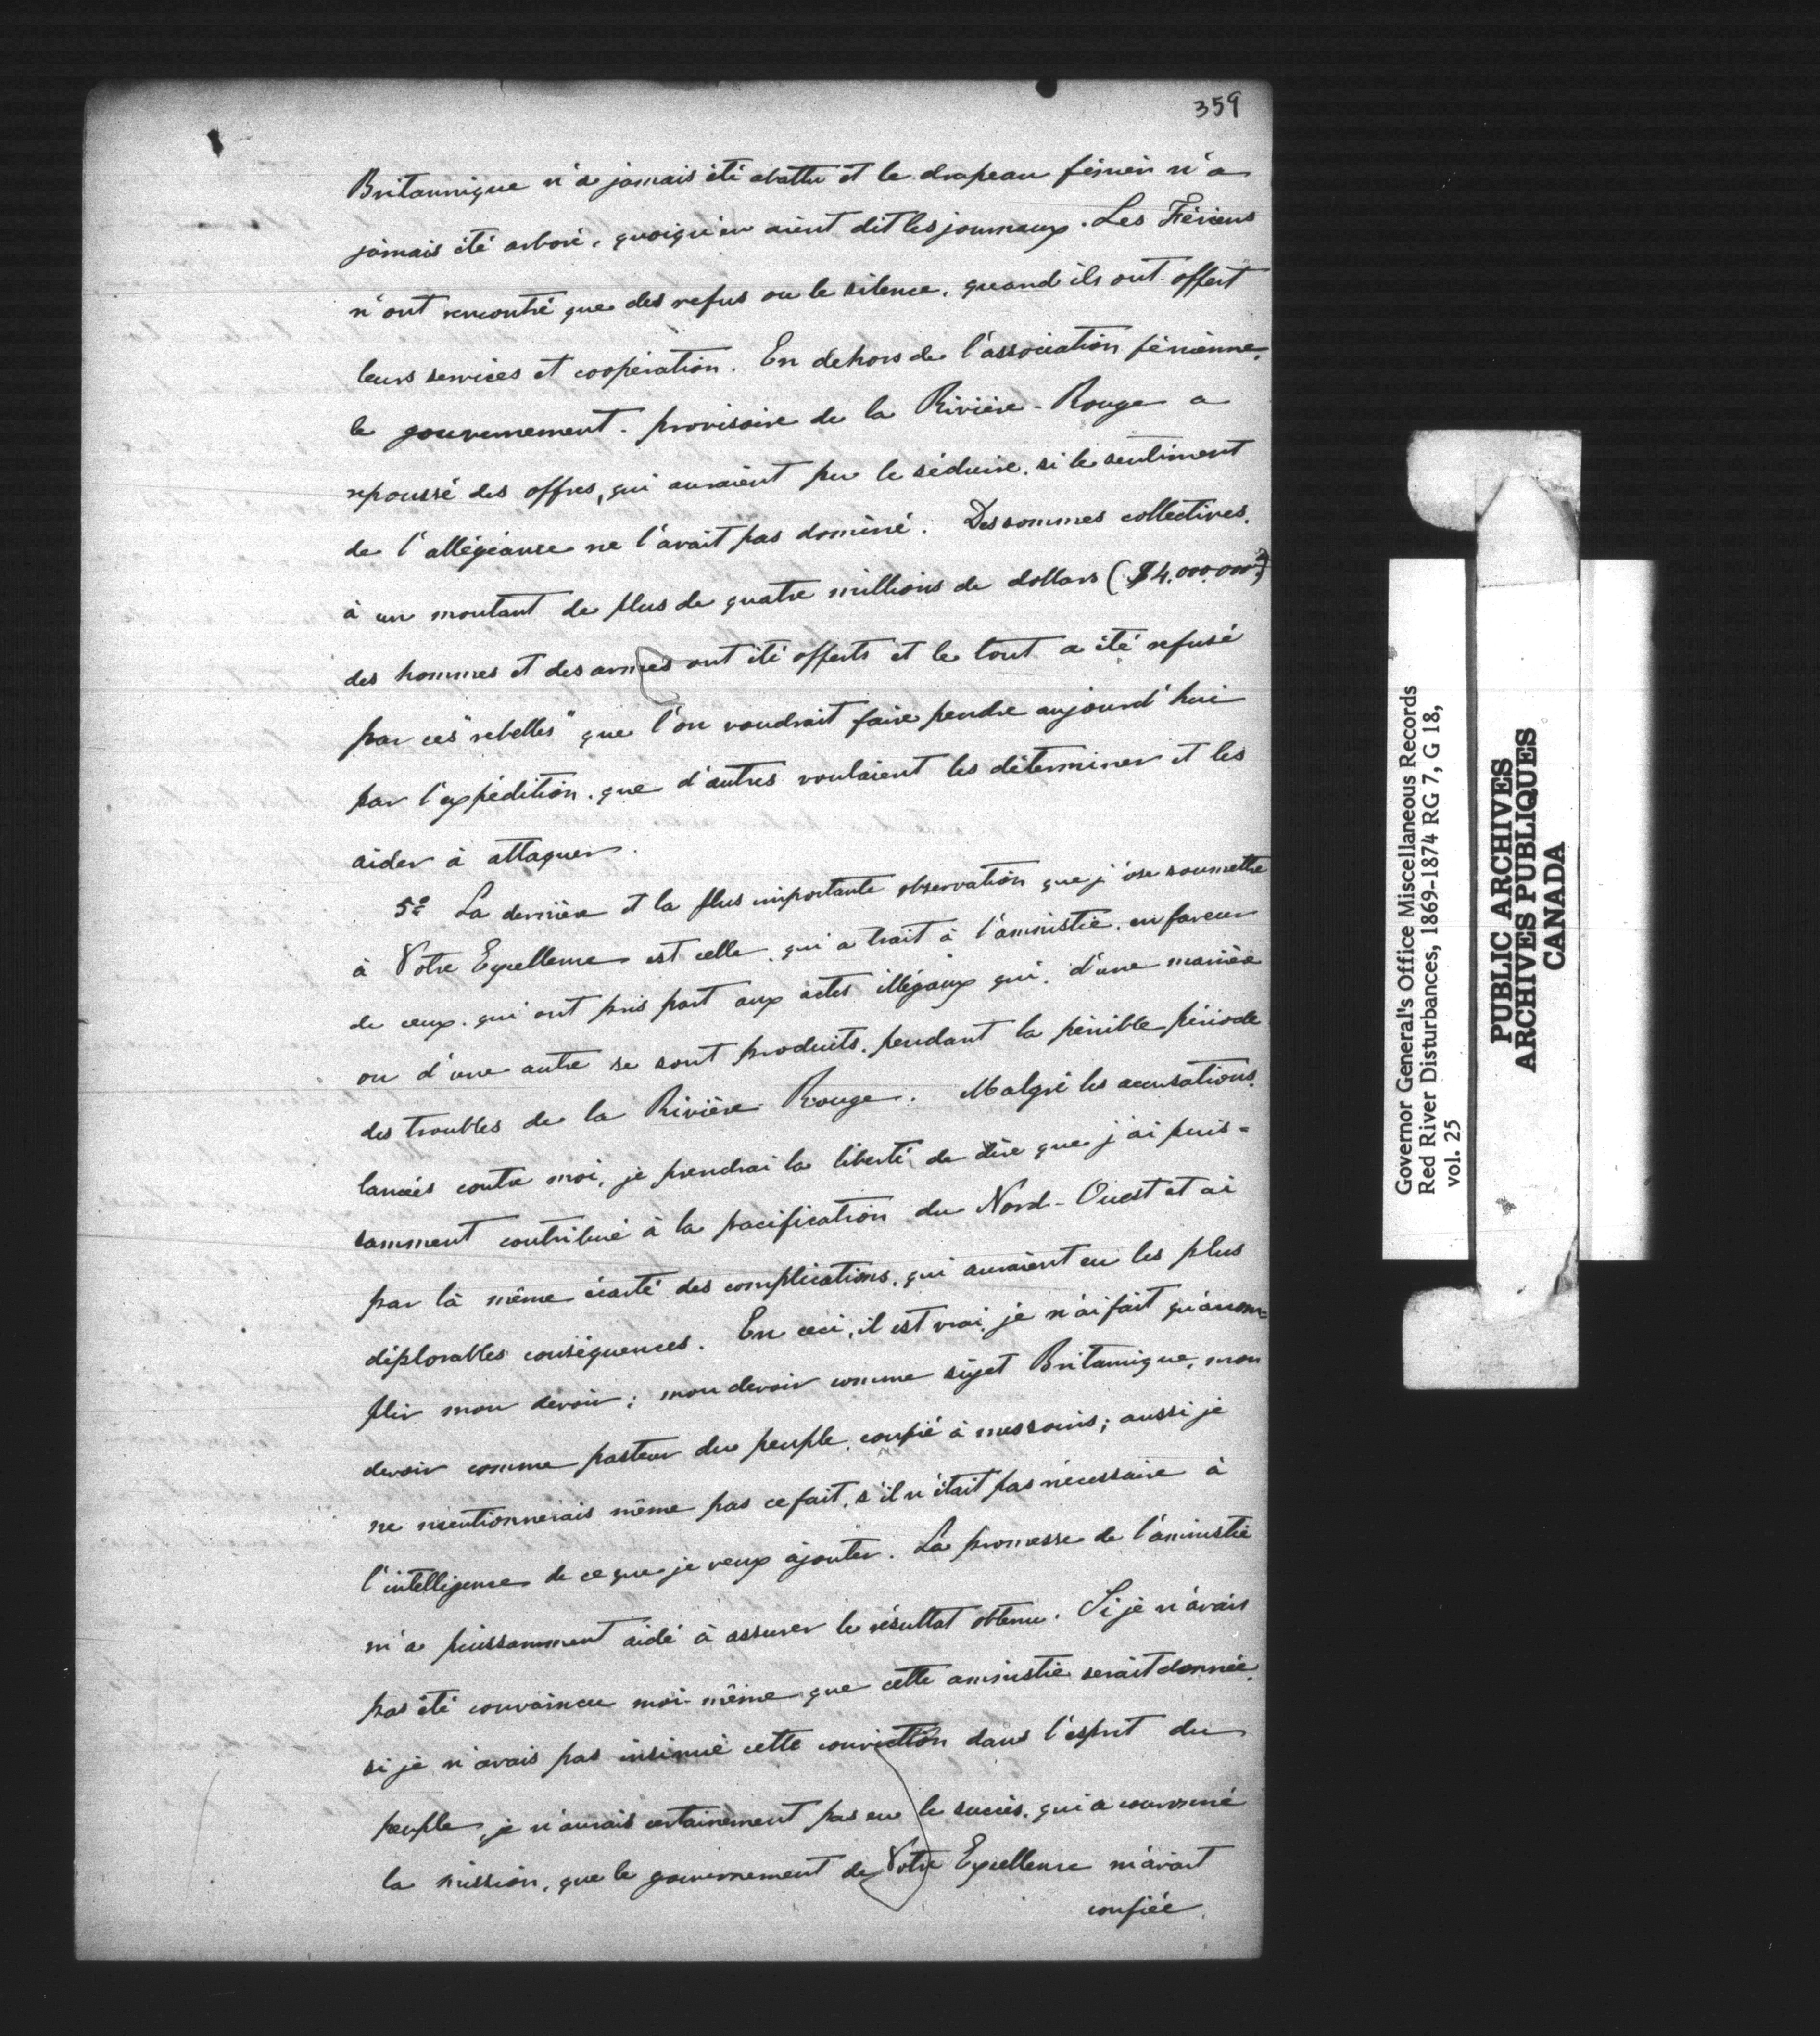 359
Britannique n'a jamais été abattu et le drapeau fénien n'a
jamais été arboré, quoiqu'en aient dit les journaux. Les Féniens
n'ont rencontré que des refus ou le silence, quand ils ont offert
leurs services et coopération. En dehors de l'association fénienne,
le gouvernement provisoire de la Rivière-Rouge a
repoussé des offres, qui auraient pu le séduire, si le sentiment
de l'allégeance ne l'avait pas dominé. Des sommes collectives,
à un montant de plus de quatre millions de dollars ($4.000.000)
des hommes et des armes ont été offerts et le tout a été refusé
par ces "rebelles" que l'on voudrait faire pendre aujourd'hui
par l'expédition, que d'autres voulaient les déterminer et les
aider à attaquer.
5º La dernière et la plus importante observation que j'ose soumettre
à Votre Excellence est celle, qui a trait à l'amnistie, en faveur
de ceux, qui ont pris part aux actes illégaux qui, d'une manière
ou d'une autre se sont produits, pendant la pénible période
des troubles de la Rivière-Rouge. Malgré les accusations,
lancées contre moi, je prendrai la liberté de dire que j'ai puis=
samment contribué à la pacification du Nord-Ouest et ai
par là même écarté des complications, qui auraient eu les plus
déplorables conséquences. En ceci, il est vrai, je n'ai fait qu'accom=
plir mon devoir; mon devoir comme sujet Britannique, mon
devoir comme pasteur du peuple, confié à mes soins; aussi je
ne mentionnerais même pas ce fait, s'il n'était pas nécessaire à
l'intelligence de ce que je veux ajouter. La promesse de l'amnistie
m'a puissamment aidé à assurer le résultat obtenu. Si je n'avais
pas été convaincu moi-même que cette amnistie serait donnée,
si je n'avais pas insinué cette conviction dans l'esprit du
peuple, je n'aurais certainement pas eu le succès, qui a couronné
la mission, que le gouvernement de Votre Excellence m'avait
confiée.
Governor General's Office Miscellaneous Records
Red River Disturbances, 1869-1874 RG 7, G 18,
vol. 25
PUBLIC ARCHIVES
ARCHIVES PUBLIQUES
CANADA